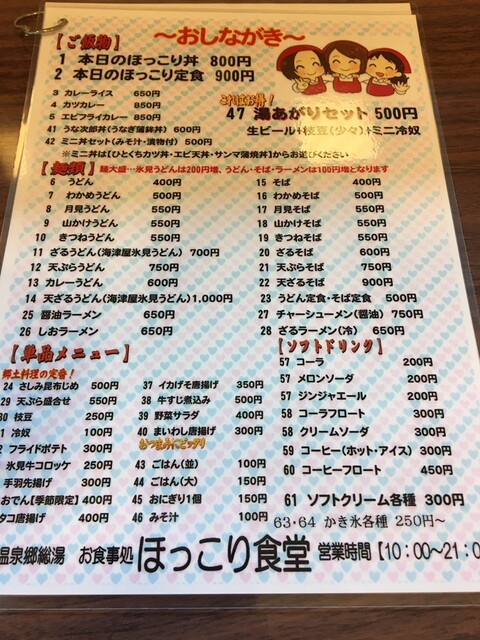 ～おしながき～
【ご飯物】
1 本日のほっこり丼 800円
2 本日のほっこり定食 900円
3 カレーライス 650円
4 カツカレー 850円
5 エビフライカレー 850円
41 うな次郎丼(うなぎ蒲鉾丼) 600円
42 ミニ丼セット(みそ汁・漬物付) 500円
※ミニ丼は【ひとくちカツ丼・エビ天丼・サンマ蒲焼丼】からお選びください
これはお得！
47 湯あがりセット 500円
生ビール+枝豆(少々)+ミニ冷奴
【麺類】 麺大盛…氷見うどんは200円増、うどん・そば・ラーメンは100円増となります
6 うどん 400円
7 わかめうどん 500円
8 月見うどん 550円
9 山かけうどん 550円
10 きつねうどん 550円
11 ざるうどん(海津屋氷見うどん) 700円
12 天ぷらうどん 750円
13 カレーうどん 600円
14 天ざるうどん(海津屋氷見うどん)1,000円
25 醤油ラーメン 650円
26 しおラーメン 650円
15 そば 400円
16 わかめそば 500円
17 月見そば 550円
18 山かけそば 550円
19 きつねそば 550円
20 ざるそば 600円
21 天ぷらそば 750円
22 天ざるそば 900円
23 うどん定食・そば定食 500円
27 チャーシューメン(醤油) 750円
28 ざるラーメン(冷) 650円
【単品メニュー】
郷土料理の定番！
24 さしみ昆布じめ 500円
29 天ぷら盛合せ 550円
30 枝豆 250円
冷奴 100円
フライドポテト 300円
氷見牛コロッケ 250円
手羽先揚げ 300円
おでん【季節限定】400円
タコ唐揚げ 400円
37 イカげそ唐揚げ 350円
38 牛すじ煮込み 500円
39 野菜サラダ 400円
40 まいわし唐揚 300円
おつまみにピッタリ
43 ごはん(並) 100円
44 ごはん(大) 150円
45 おにぎり1個 150円
46 みそ汁 100円
【ソフトドリンク】
57 コーラ 200円
57 メロンソーダ 200円
57 ジンジャエール 200円
58 コーラフロート 300円
58 クリームソーダ 300円
59 コーヒー(ホット・アイス) 300円
60 コーヒーフロート 450円
61 ソフトクリーム各種 300円
63・64 かき氷各種 250円～
温泉郷総湯 お食事処 ほっこり食堂 営業時間【10:00～21:0